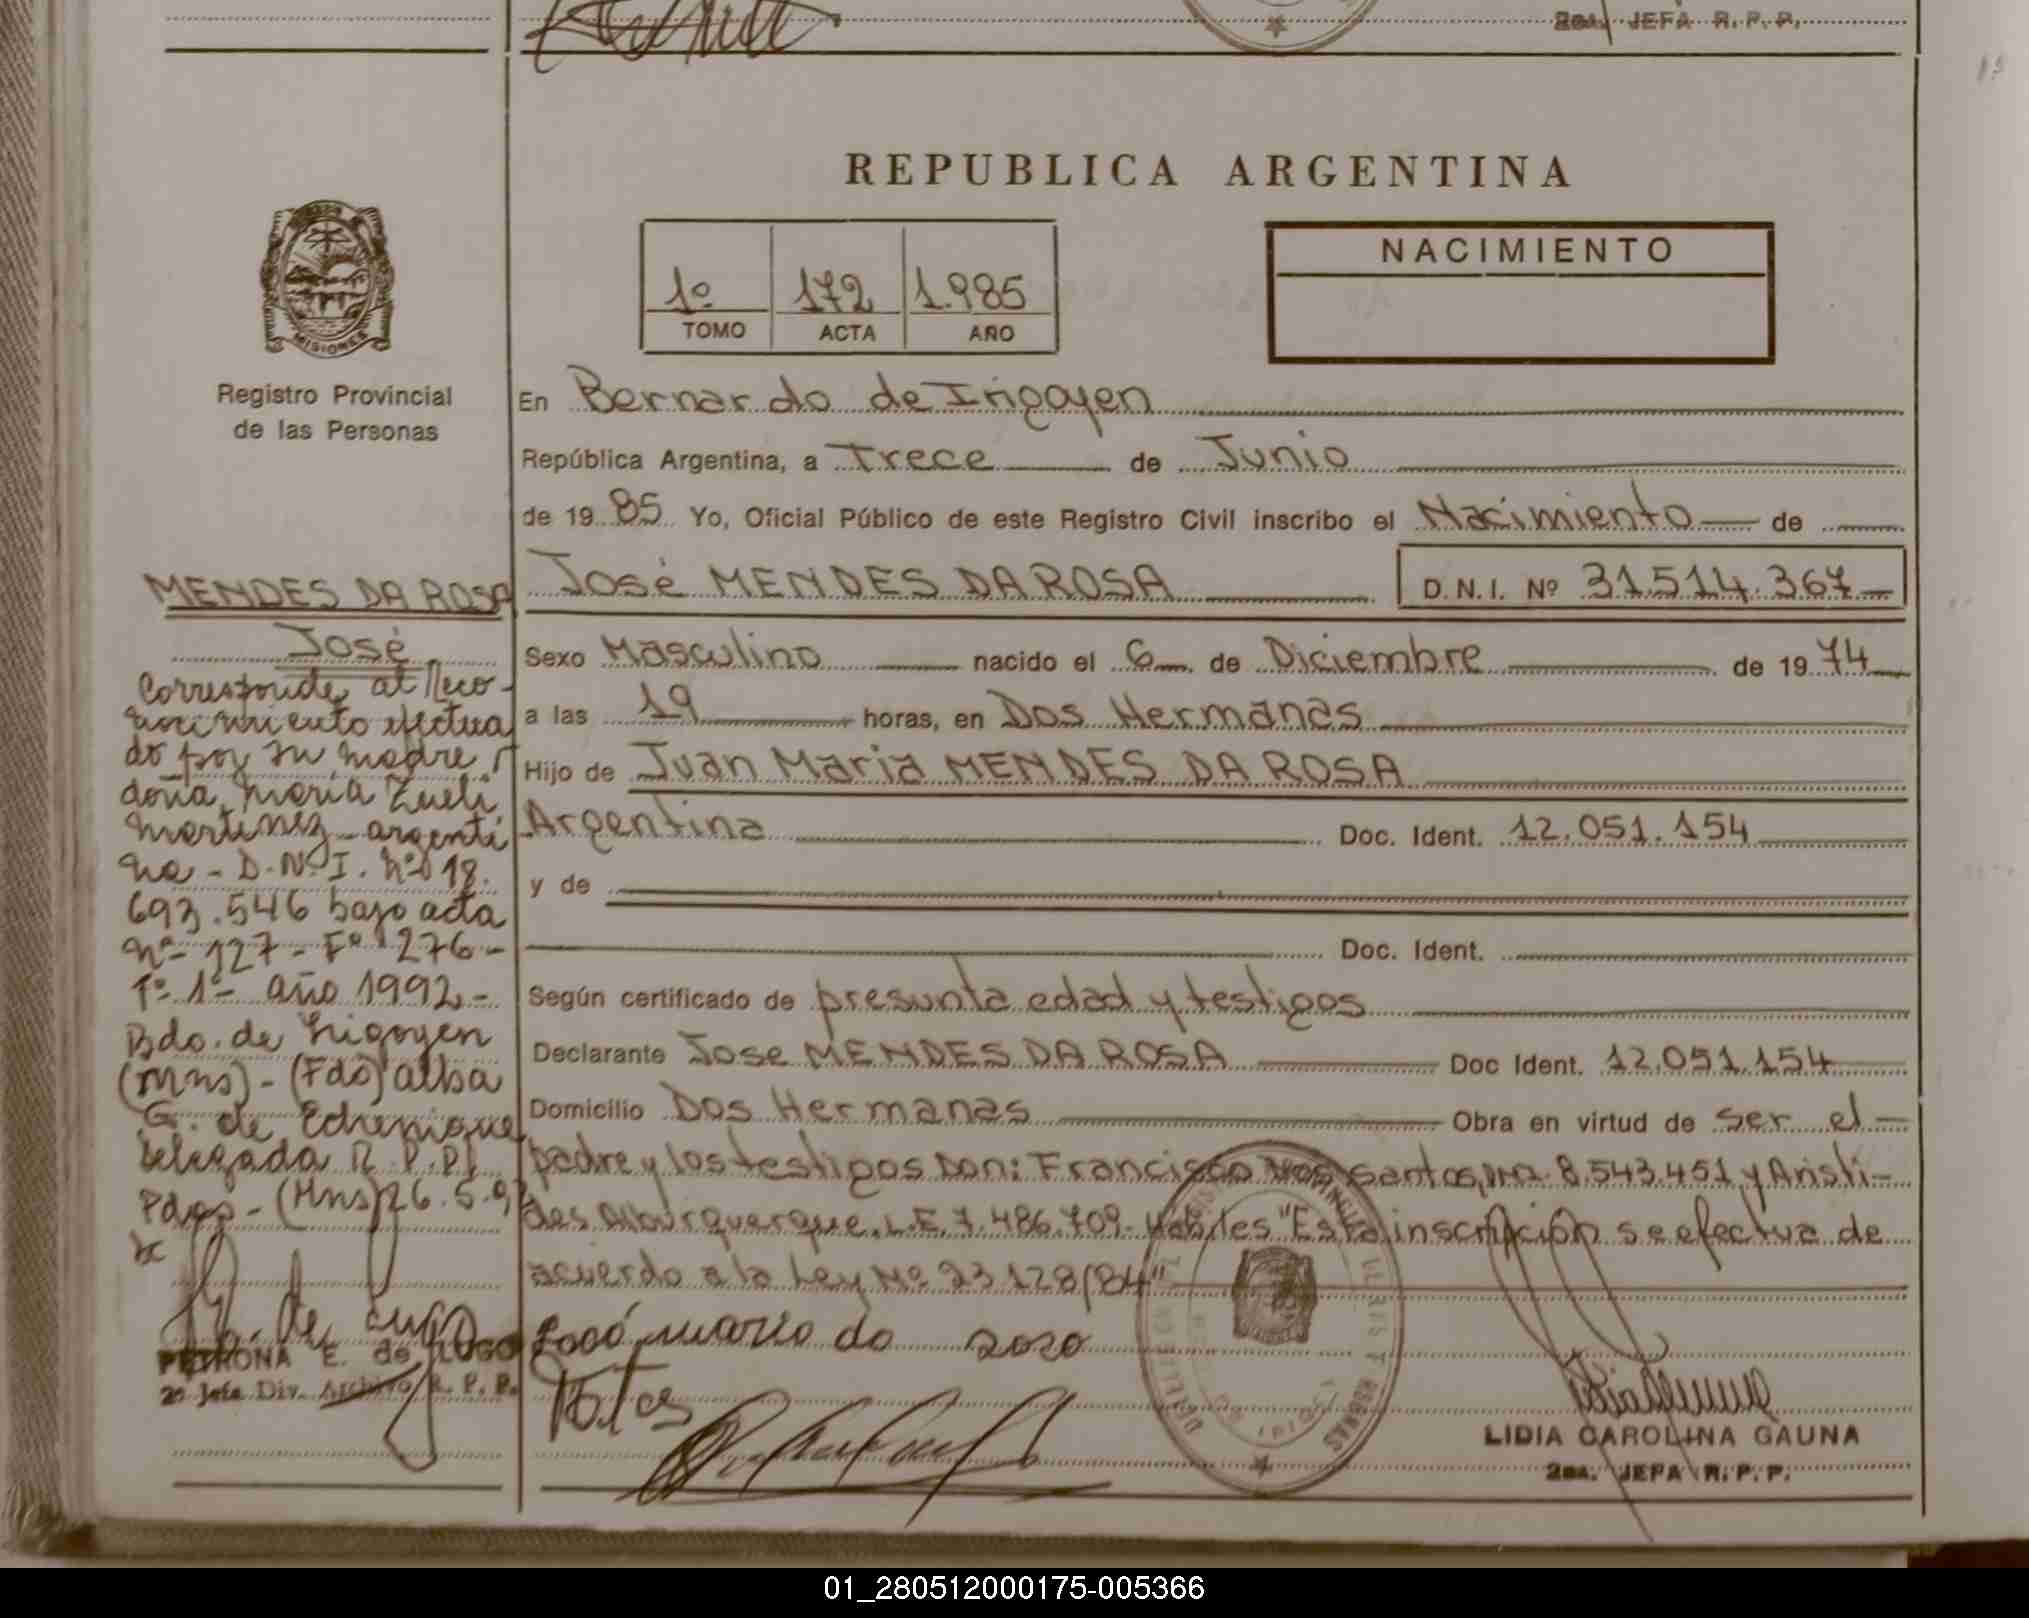 2da. JEFA R. P. P.
REPUBLICA ARGENTINA
NACIMIENTO
1º 172 1.985
TOMO ACTA AÑO
MISIONES
Registro Provincial
de las Personas
En Bernardo de Irigoyen
República Argentina, a Trece de Junio
de 19 85 Yo, Oficial Público de este Registro Civil inscribo el Nacimiento de
José MENDES DA ROSA D.N.I. Nº 31.514.367
Sexo Masculino nacido el 6 de Diciembre de 19 74
a las 19 horas, en Dos Hermanas
Hijo de Juan Maria MENDES DA ROSA
Argentina Doc. Ident. 12.051.154
y de
Doc. Ident.
Según certificado de presunta edad y testigos
Declarante Jose MENDES DA ROSA Doc Ident. 12.051.154
Domicilio Dos Hermanas Obra en virtud de ser el
padre y los testigos Don: Francisco Dos Santos, 8.543.451 y Aristi-
des Alburquerque, L.E. 7.486.709- Habiles "Esta inscripción se efectua de
acuerdo a la Ley Nº 23.128/84"
LIDIA CAROLINA GAUNA
2da. JEFA R. P. P.
MENDES DA ROSA
José
Corresponde al Reco-
nocimiento efectua
do por su madre
doña Maria Zueli
Martinez - argenti
na - D.N.I. Nº 18.
693.546 bajo acta
Nº 127 - Fº 276 -
Tº 1º - año 1992 -
Bdo. de Irigoyen
(Mns) - (Fdo) Alba
G. de Echenique
Delegada R.P.P.
Pdas - (Mns) 26.5.92
PETRONA E. de LUGO
2º Jefa Div. Archivo R. P. P.
01_280512000175-005366